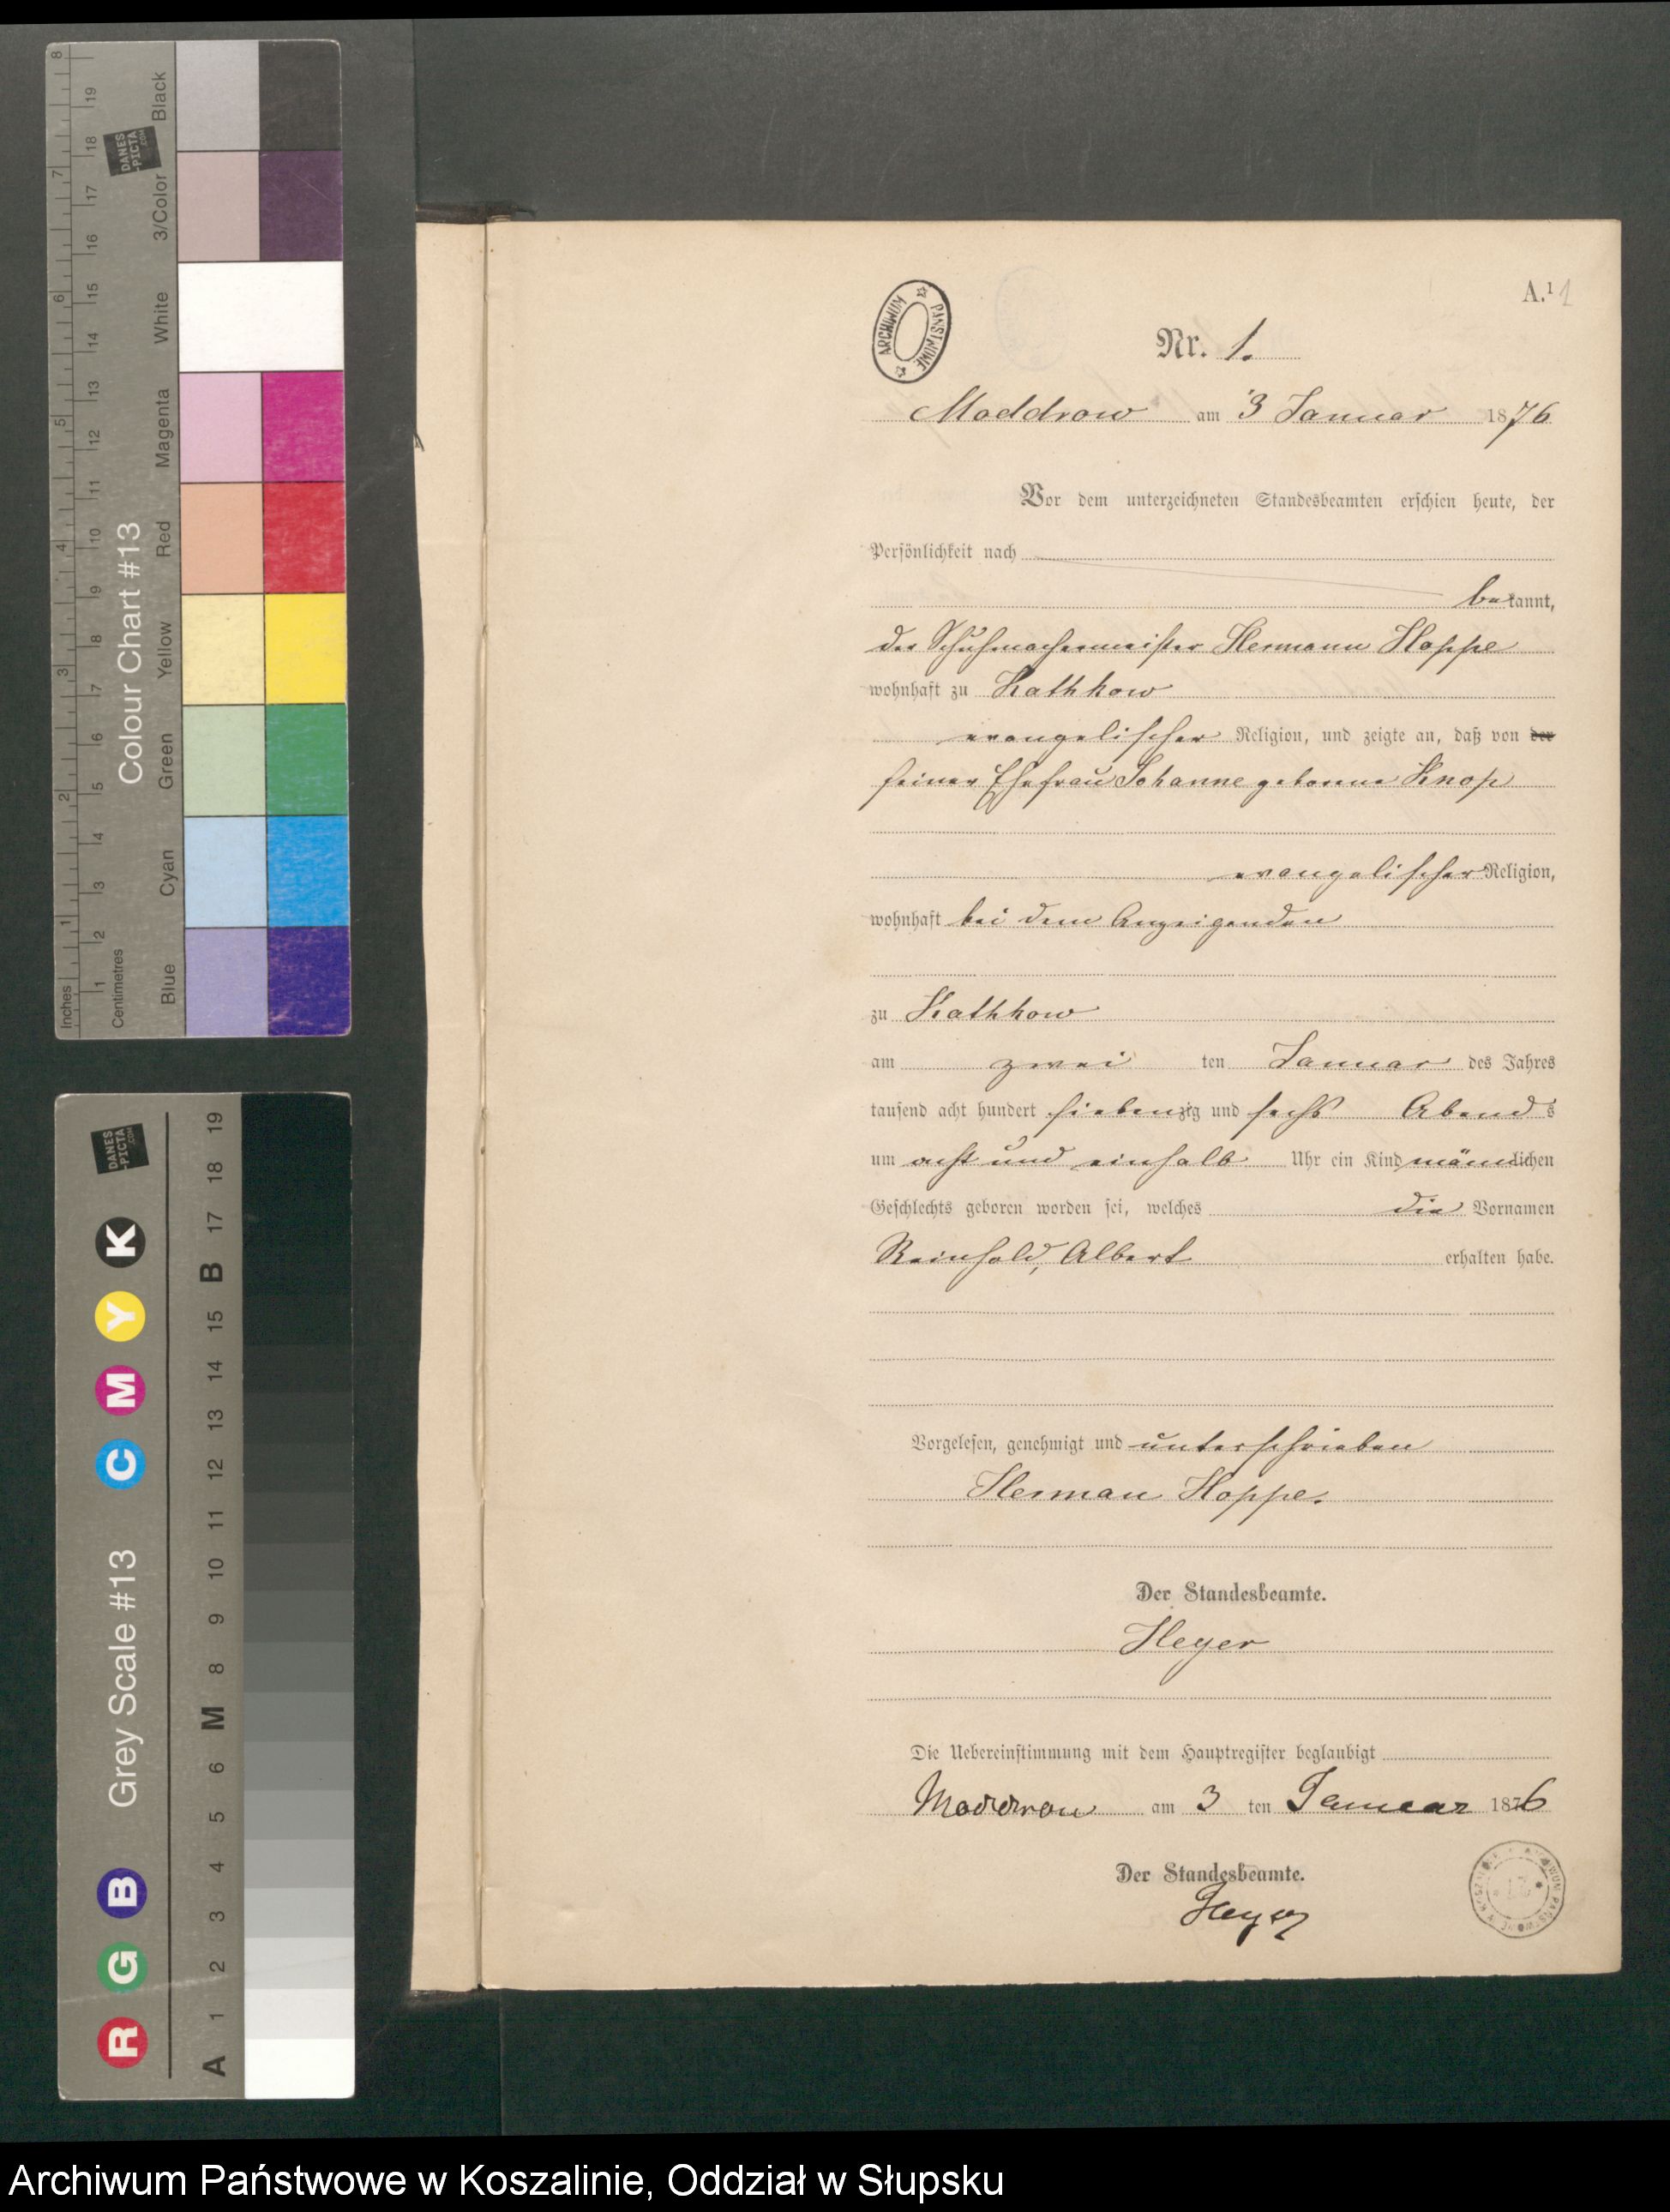 8
19
18
7
17
16
6
15
14
13
5
12
11
4
10
9
8
3
7
6
2
5
4
3
1
2
1
Inches
Centimetres
Colour Chart #13
Blue Cyan Green Yellow Red Magenta White 3/Color Black
DANES
-PICTA
.COM
DANES
-PICTA
.COM
Grey Scale #13
R G B C M Y K
A 1 2 3 4 5 6 M 8 9 10 11 12 13 14 15 B 17 18 19
A.¹ 1
ARCHIWUM PAŃSTWOWE
Nr. 1.
Moddrow am 3 Januar 1876
Vor dem unterzeichneten Standesbeamten erschien heute, der
Persönlichkeit nach
bekannt,
der Schuhmachermeister Hermann Hoppe
wohnhaft zu Kathkow
evangelischer Religion, und zeigte an, daß von der
seiner Ehefrau Johanne geborene Knop
evangelischer Religion,
wohnhaft bei dem Anzeigenden
zu Kathkow
am zwei ten Januar des Jahres
tausend acht hundert siebenzig und sechs Abends
um acht und einhalb Uhr ein Kind männlichen
Geschlechts geboren worden sei, welches die Vornamen
Reinhold, Albert erhalten habe.
Vorgelesen, genehmigt und unterschrieben
Herman Hoppe.
Der Standesbeamte.
Heyer
Die Uebereinstimmung mit dem Hauptregister beglaubigt
Moddrow am 3 ten Januar 1876
Der Standesbeamte.
Heyer
Archiwum Państwowe w Koszalinie, Oddział w Słupsku